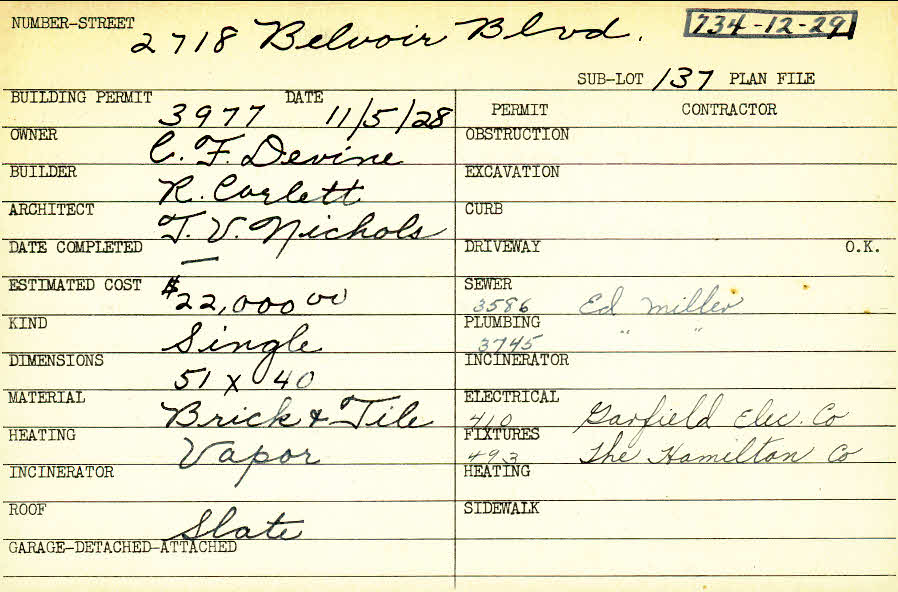 NUMBER-STREET 2718 Belvoir Blvd. 734-12-29
SUB-LOT 137 PLAN FILE
BUILDING PERMIT 3977 DATE 11/5/28
OWNER C. F. Devine
BUILDER R. Corlett
ARCHITECT T. V. Nichols
DATE COMPLETED —
ESTIMATED COST $22,000 00
KIND Single
DIMENSIONS 51 x 40
MATERIAL Brick & Tile
HEATING Vapor
INCINERATOR
ROOF Slate
GARAGE-DETACHED-ATTACHED
PERMIT CONTRACTOR
OBSTRUCTION
EXCAVATION
CURB
DRIVEWAY O.K.
SEWER
3586 Ed Miller
PLUMBING " "
3745
INCINERATOR
ELECTRICAL
410 Garfield Elec. Co
FIXTURES
493 The Hamilton Co
HEATING
SIDEWALK